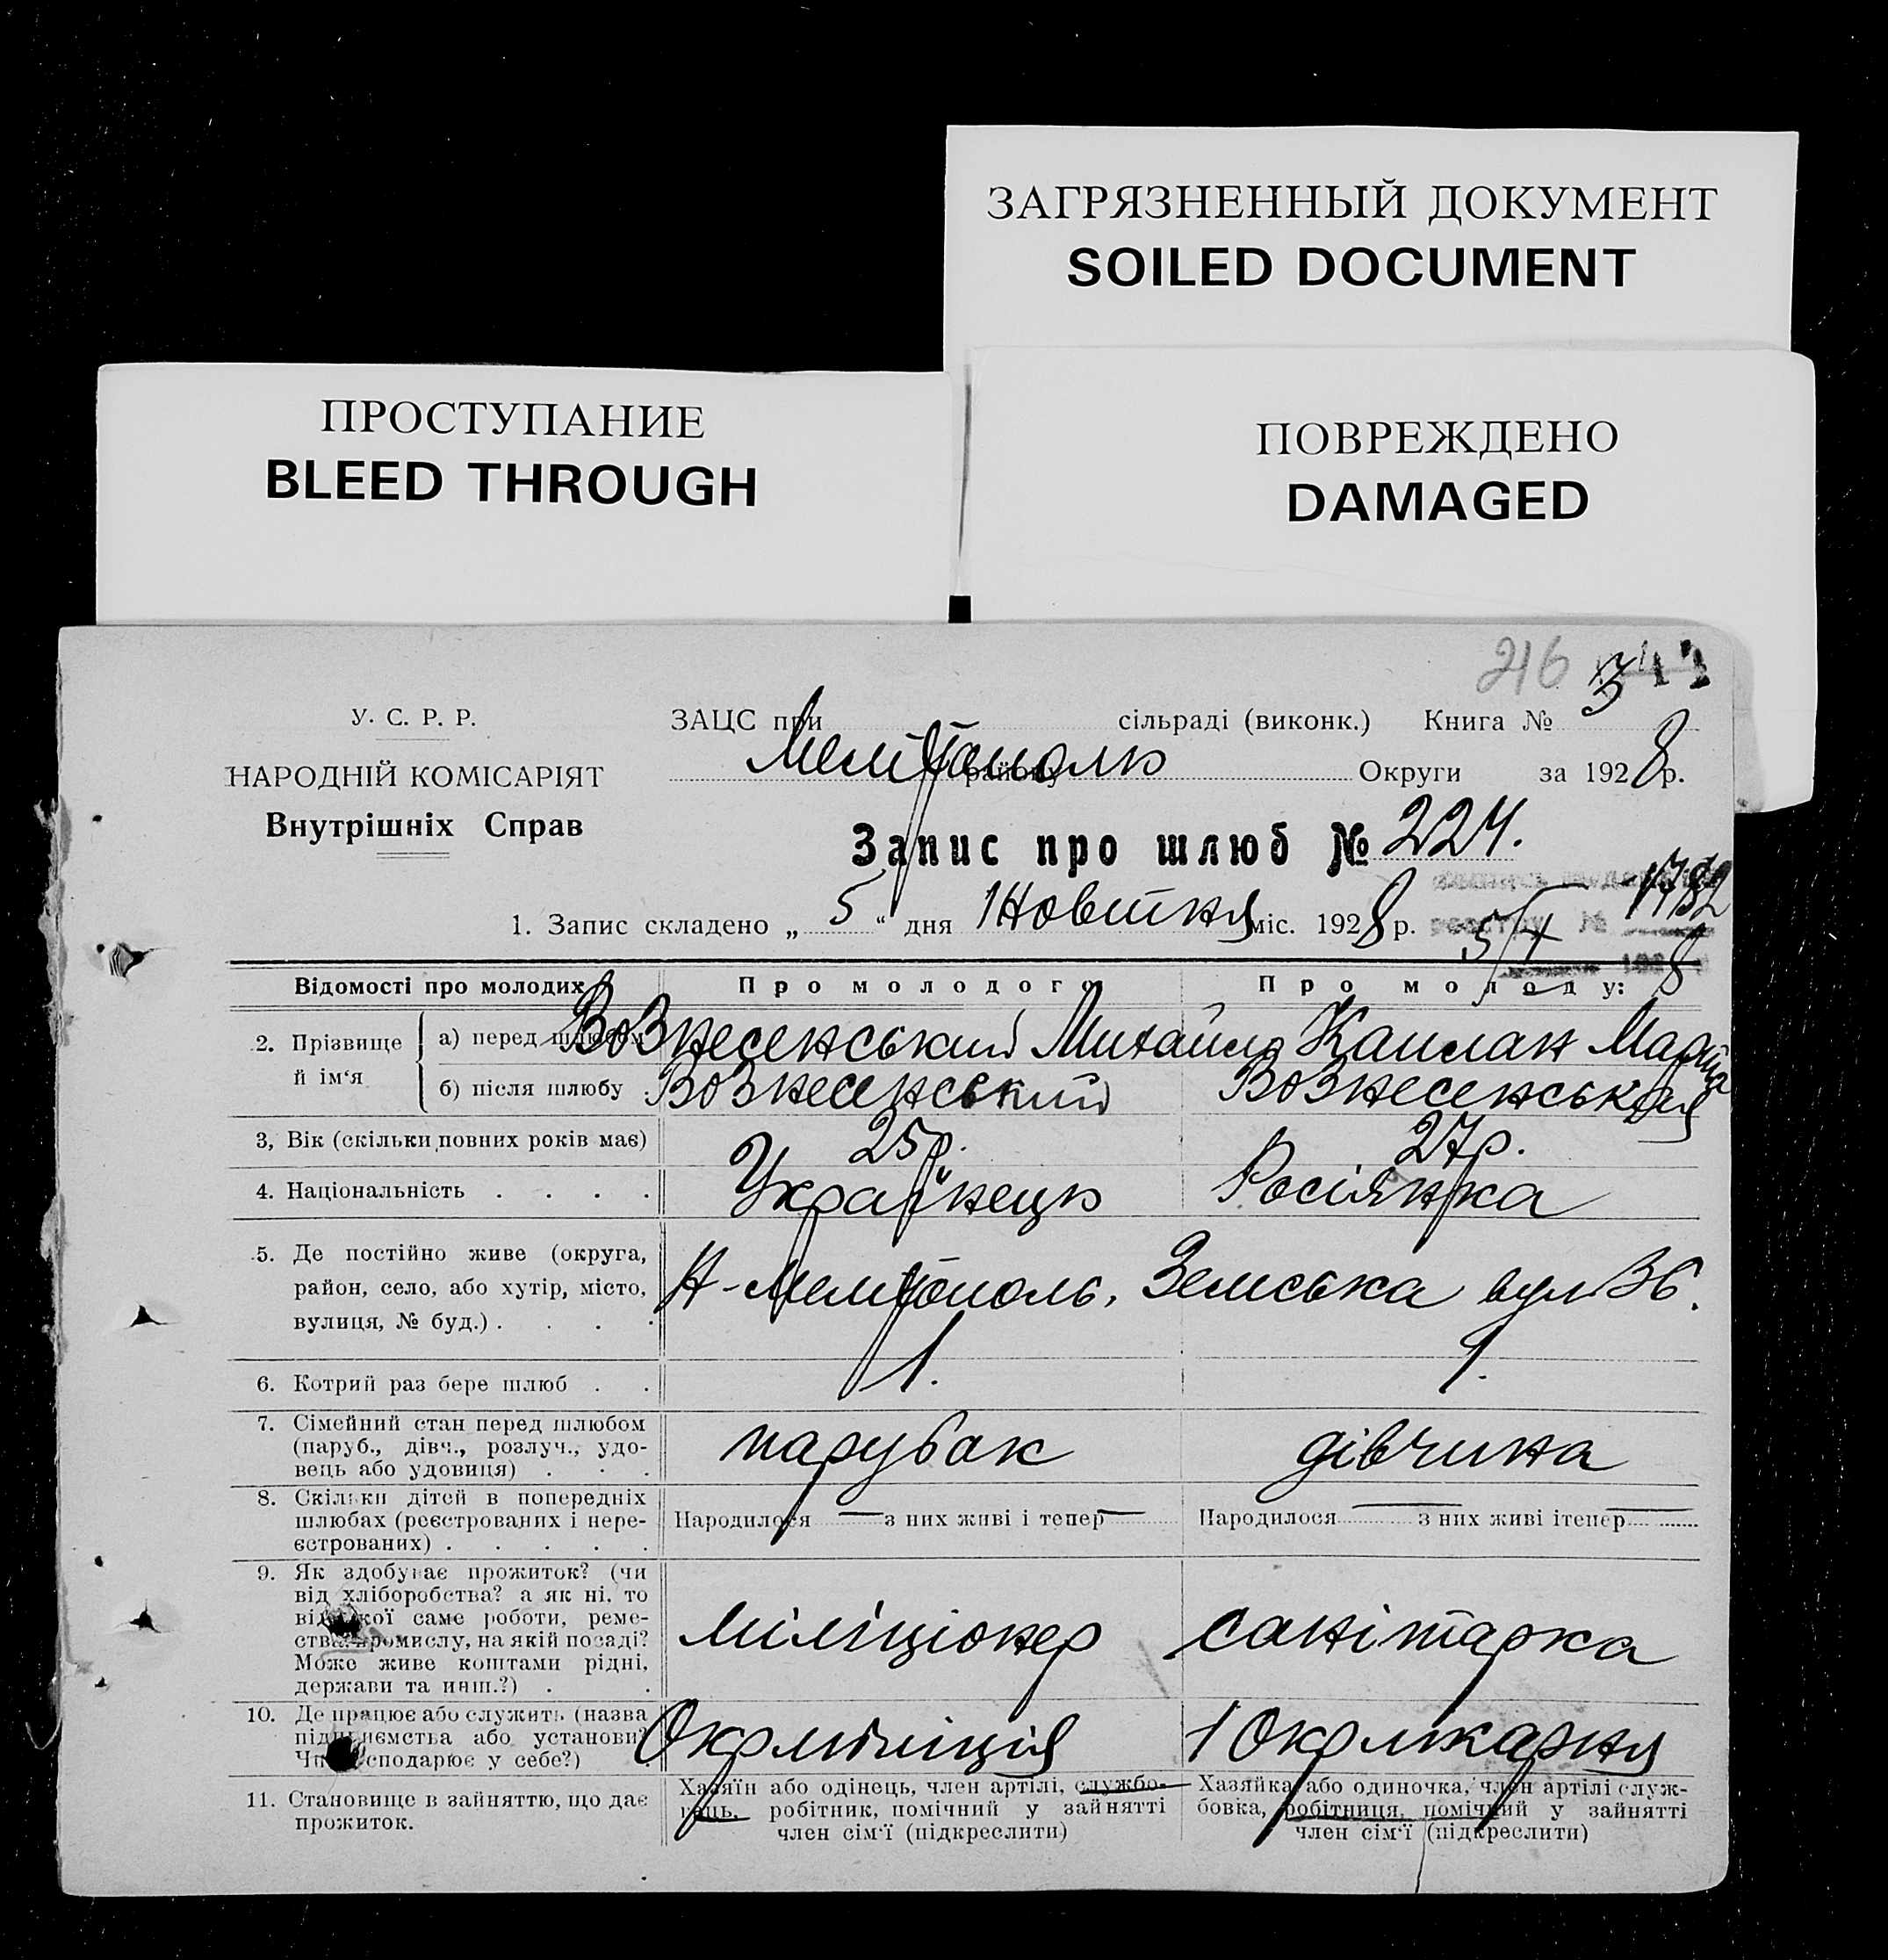 ЗАГРЯЗНЕННЫЙ ДОКУМЕНТ
SOILED DOCUMENT
ПРОСТУПАНИЕ
BLEED THROUGH
ПОВРЕЖДЕНО
DAMAGED
216
У. С. Р. Р.
НАРОДНІЙ КОМІСАРІЯТ
Внутрішніх Справ
ЗАЦС при сільраді (виконк.) Книга № 3
району Округи за 1928 р.
Запис про шлюб № 224.
1. Запис складено „ 5 “ дня Жовтня міс. 1928 р.
Відомості про молодих Про молодого Про молоду:
2. Прізвище й ім‘я
а) перед шлюбом Вознесенський Михайло Каплан
б) після шлюбу Вознесенський Вознесенська
3, Вік (скільки повних років має) 25р. 27р.
4. Національність . . . . Українець Росіянка
5. Де постійно живе (округа,
район, село, або хутір, місто,
вулиця, № буд.) . . . . Мелітополь, Земська вул 36.
6. Котрий раз бере шлюб . . 1. 1.
7. Сімейний стан перед шлюбом
(паруб., дівч., розлуч., удо-
вець або удовиця) . . . парубак дівчина
8. Скільки дітей в попередніх
шлюбах (реєстрованих і нере-
єстрованих) . . . . .
Народилося — з них живі і тепер —
Народилося — з них живі ітепер —
9. Як здобуває прожиток? (чи
від хліборобства? а як ні, то
від якої саме роботи, реме-
ства, промислу, на якій посаді?
Може живе коштами рідні,
держави та инш.?) . . міліціонер санітарка
10. Де працює або служить (назва
підприємства або установи?
Чи господарює у себе?) . Окрміліція 1 Окрлікарня
11. Становище в зайняттю, що дає
прожиток.
Хазяїн або одінець, член артілі, службо-
вець, робітник, помічний у зайнятті
член сім‘ї (підкреслити)
Хазяйка або одиночка, член артілі служ-
бовка, робітниця, помічний у зайнятті
член сім‘ї (підкреслити)